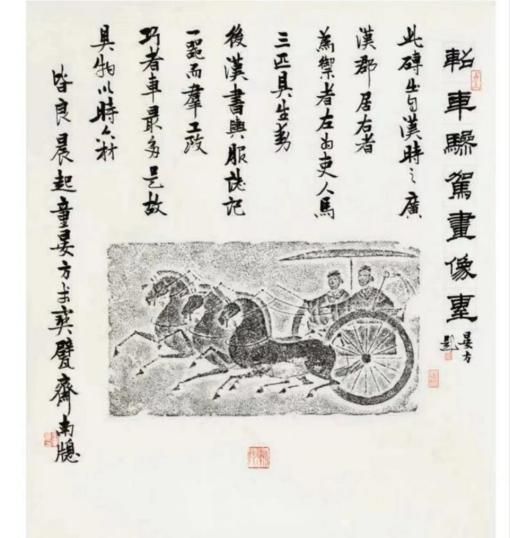 軺車驂駕畫像
晏方題
此磚出自漢時之廣
漢郡居右者
為禦者左為吏人馬
三匹具生動
後漢書輿服誌記
一器而羣工致
巧者車最多是故
具物以時六材
皆良晨起童晏方於齋南牖